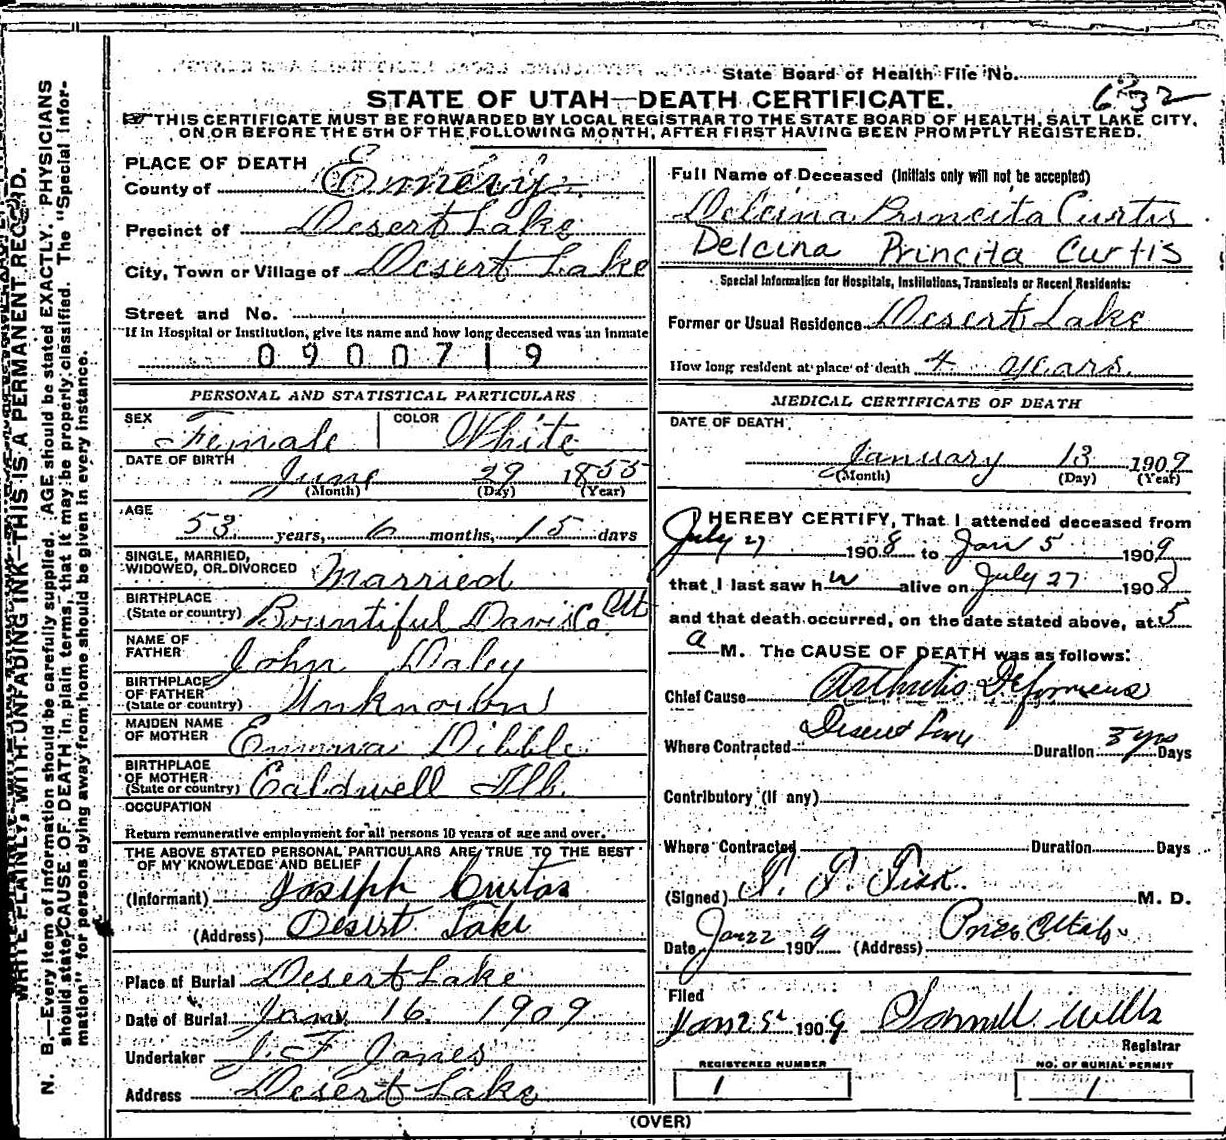 State Board of Health File No. 632
STATE OF UTAH—DEATH CERTIFICATE.
THIS CERTIFICATE MUST BE FORWARDED BY LOCAL REGISTRAR TO THE STATE BOARD OF HEALTH, SALT LAKE CITY,
ON OR BEFORE THE 5TH OF THE FOLLOWING MONTH, AFTER FIRST HAVING BEEN PROMPTLY REGISTERED.
PLACE OF DEATH
County of Emery
Precinct of Desert Lake
City, Town or Village of Desert Lake
Street and No.
If in Hospital or Institution, give its name and how long deceased was an inmate
0900719
PERSONAL AND STATISTICAL PARTICULARS
SEX Female COLOR White
DATE OF BIRTH June 29 1855
(Month) (Day) (Year)
AGE 53 years, 6 months, 15 days
SINGLE, MARRIED,
WIDOWED, OR DIVORCED Married
BIRTHPLACE
(State or country) Bountiful Davis Co. Ut
NAME OF
FATHER John Daley
BIRTHPLACE
OF FATHER
(State or country) Unknown
MAIDEN NAME
OF MOTHER Emma Dibble
BIRTHPLACE
OF MOTHER
(State or country) Caldwell Ill.
OCCUPATION
Return remunerative employment for all persons 10 years of age and over.
THE ABOVE STATED PERSONAL PARTICULARS ARE TRUE TO THE BEST
OF MY KNOWLEDGE AND BELIEF
(Informant) Joseph Curtis
(Address) Desert Lake
Place of Burial Desert Lake
Date of Burial Jan. 16. 1909
Undertaker J. F. Jones
Address Desert Lake
Full Name of Deceased (Initials only will not be accepted)
Delcina Princita Curtis
Delcina Princita Curtis
Special Information for Hospitals, Institutions, Transients or Recent Residents:
Former or Usual Residence Desert Lake
How long resident at place of death 4 years.
MEDICAL CERTIFICATE OF DEATH
DATE OF DEATH
January 13 1909
(Month) (Day) (Year)
I HEREBY CERTIFY, That I attended deceased from
July 27 1908 to Jan 5 1909
that I last saw h alive on July 27 1908
and that death occurred, on the date stated above, at 5
a M. The CAUSE OF DEATH was as follows:
Chief Cause Arthritis Deformens
Where Contracted Desert Duration 3 yrs Days
Contributory (if any)
Where Contracted Duration Days
(Signed) Fisk. M. D.
Date Jan 22 1909 (Address) Price Utah
Filed
Jan 1909 Wells
Registrar
REGISTERED NUMBER
1
NO. OF BURIAL PERMIT
1
(OVER)
N. B.—Every item of information should be carefully supplied. AGE should be stated EXACTLY. PHYSICIANS
should state CAUSE OF DEATH in plain terms, that it may be properly classified. The "Special Information" for persons dying away from home should be given in every instance.
WRITE PLAINLY, WITH UNFADING INK—THIS IS A PERMANENT RECORD.